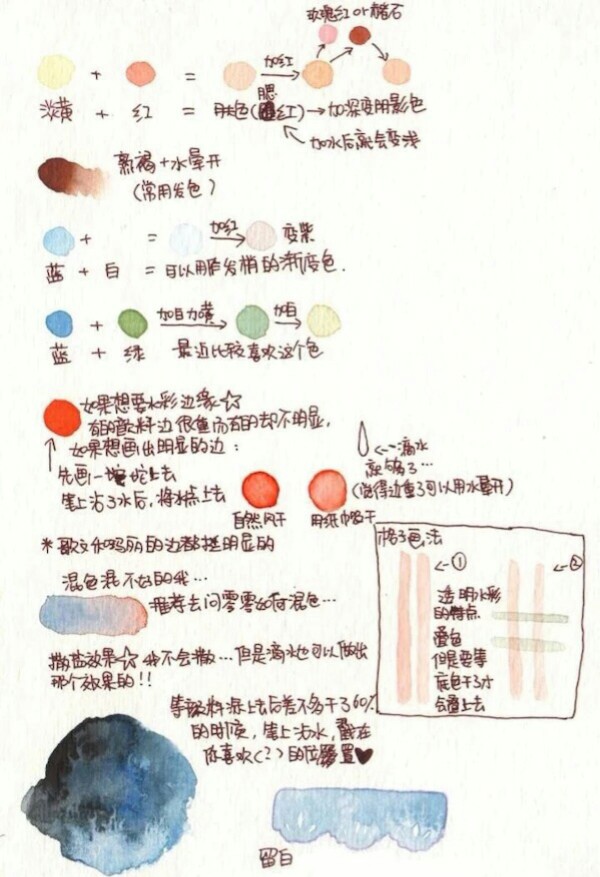 玫瑰红 or 赭石
+ = 加红
淡黄 + 红 = 肤色(腮红)→加深变阴影色
加水后就会变浅
熟褐+水晕开
(常用发色)
+ = 加红 变紫
蓝 + 白 = 可以用作发梢的渐变色.
+ 加白
蓝 + 绿 最近比较喜欢这个色
如果想要水彩边缘☆
有的颜料边很重而有的却不明显,
如果想画出明显的边:
先画一坨上去
笔上沾了水后,将水点上去
自然风干
用纸巾吸干
←--滴水
就够了…
(觉得边重了可以用水晕开)
的边都挺明显的
混色混不好的我…
推荐去问零零如何混色…
撒盐效果☆ 我不会撒…但是滴水也可以做出
那个效果的!!
等颜料涂上去后差不多干了60%
的时候,笔上沾水,戳在
你喜欢(?)的位置♥
留白
格子画法
←--①
←--②
透明水彩
的特点
叠色
但是要等
底色干了才
叠上去